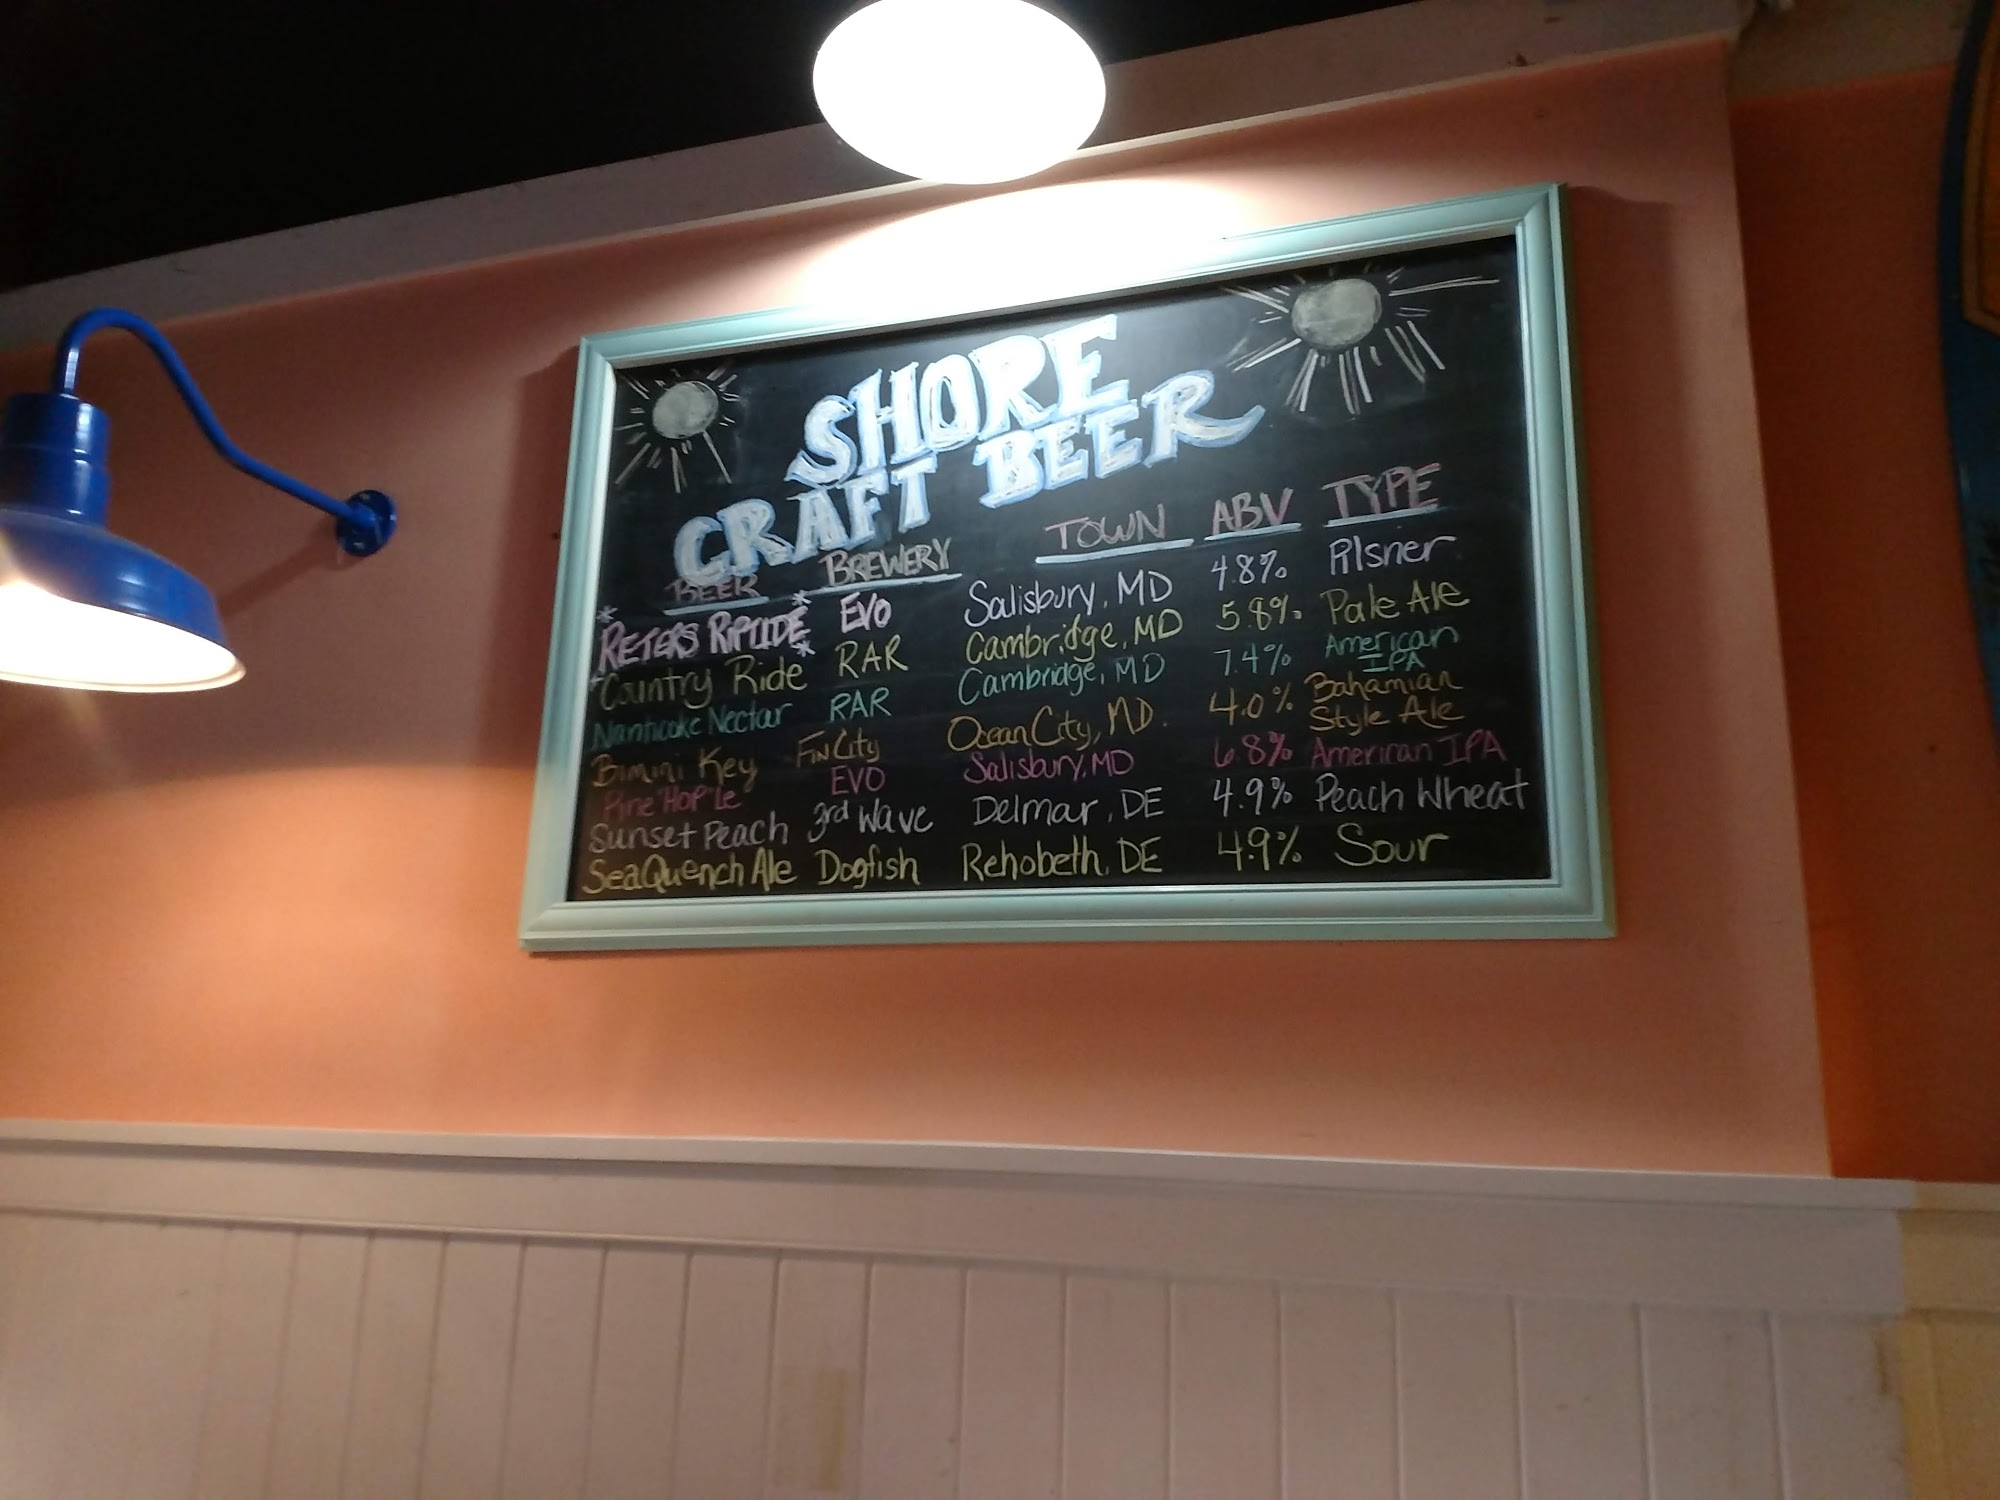 SHORE
CRAFT BEER
BEER BREWERY TOWN ABV TYPE
*RETERS RIPTIDE* EVO Salisbury, MD 4.8% Pilsner
Country Ride RAR Cambridge, MD 5.8% Pale Ale
Nanticoke Nectar RAR Cambridge, MD 7.4% American IPA
Bimini Key Fin City Ocean City, MD. 4.0% Bahamian Style Ale
Pine"Hop"Le EVO Salisbury, MD 6.8% American IPA
Sunset Peach 3rd Wave Delmar, DE 4.9% Peach Wheat
SeaQuench Ale Dogfish Rehobeth, DE 4.9% Sour